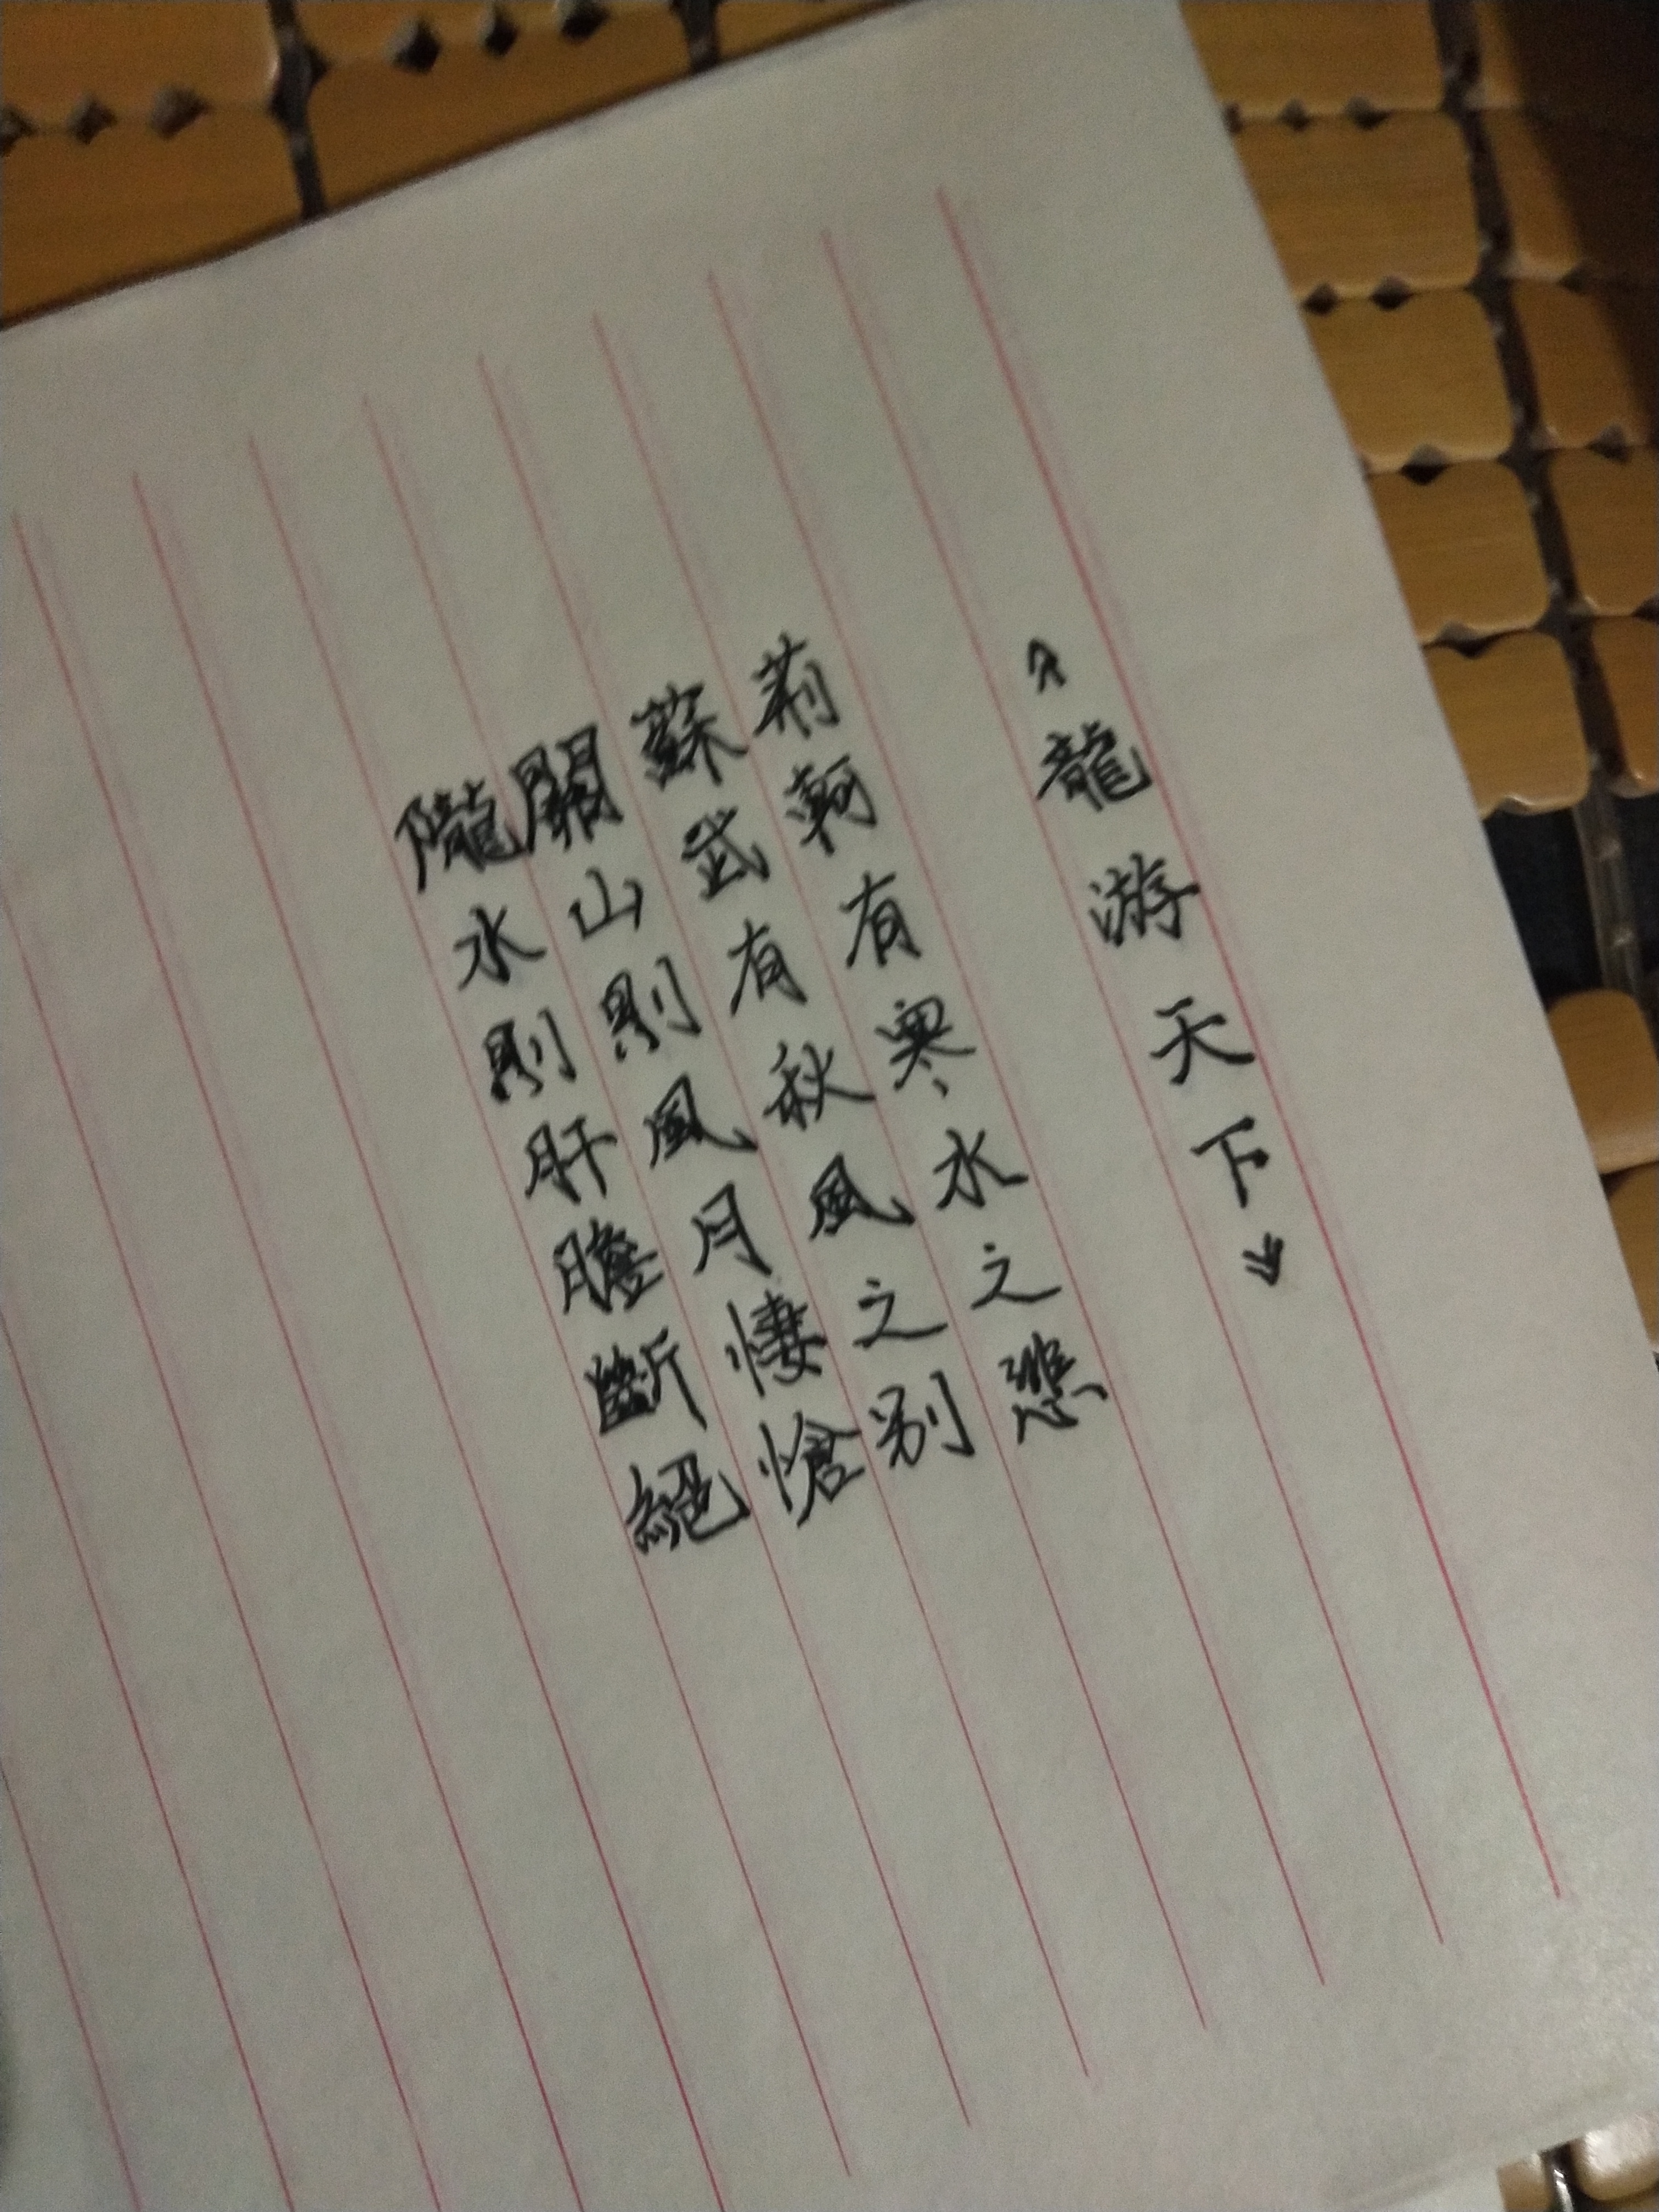 《龍游天下》
荊軻有寒水之悲
蘇武有秋風之別
關山則風月悽愴
隴水則肝膽斷絕